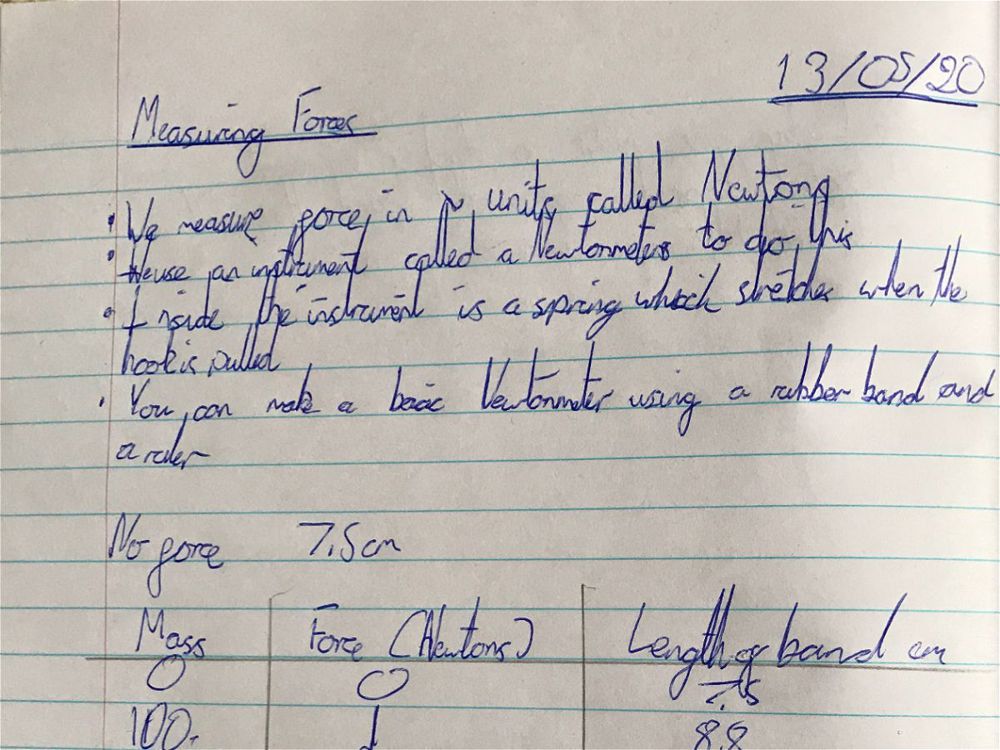 13/05/20
Measuring Forces
• We measure force, in N, units called Newtons
• We use an instrument called a Newtonmeters to do this
• Inside the instrument is a spring which stretches when the
hook is pulled
• You can make a basic Newtonmeter using a rubber band and
a ruler
No force 7.5cm
Mass Force (Newtons) Length of band cm
0 0 7.5
100. 1 8.8